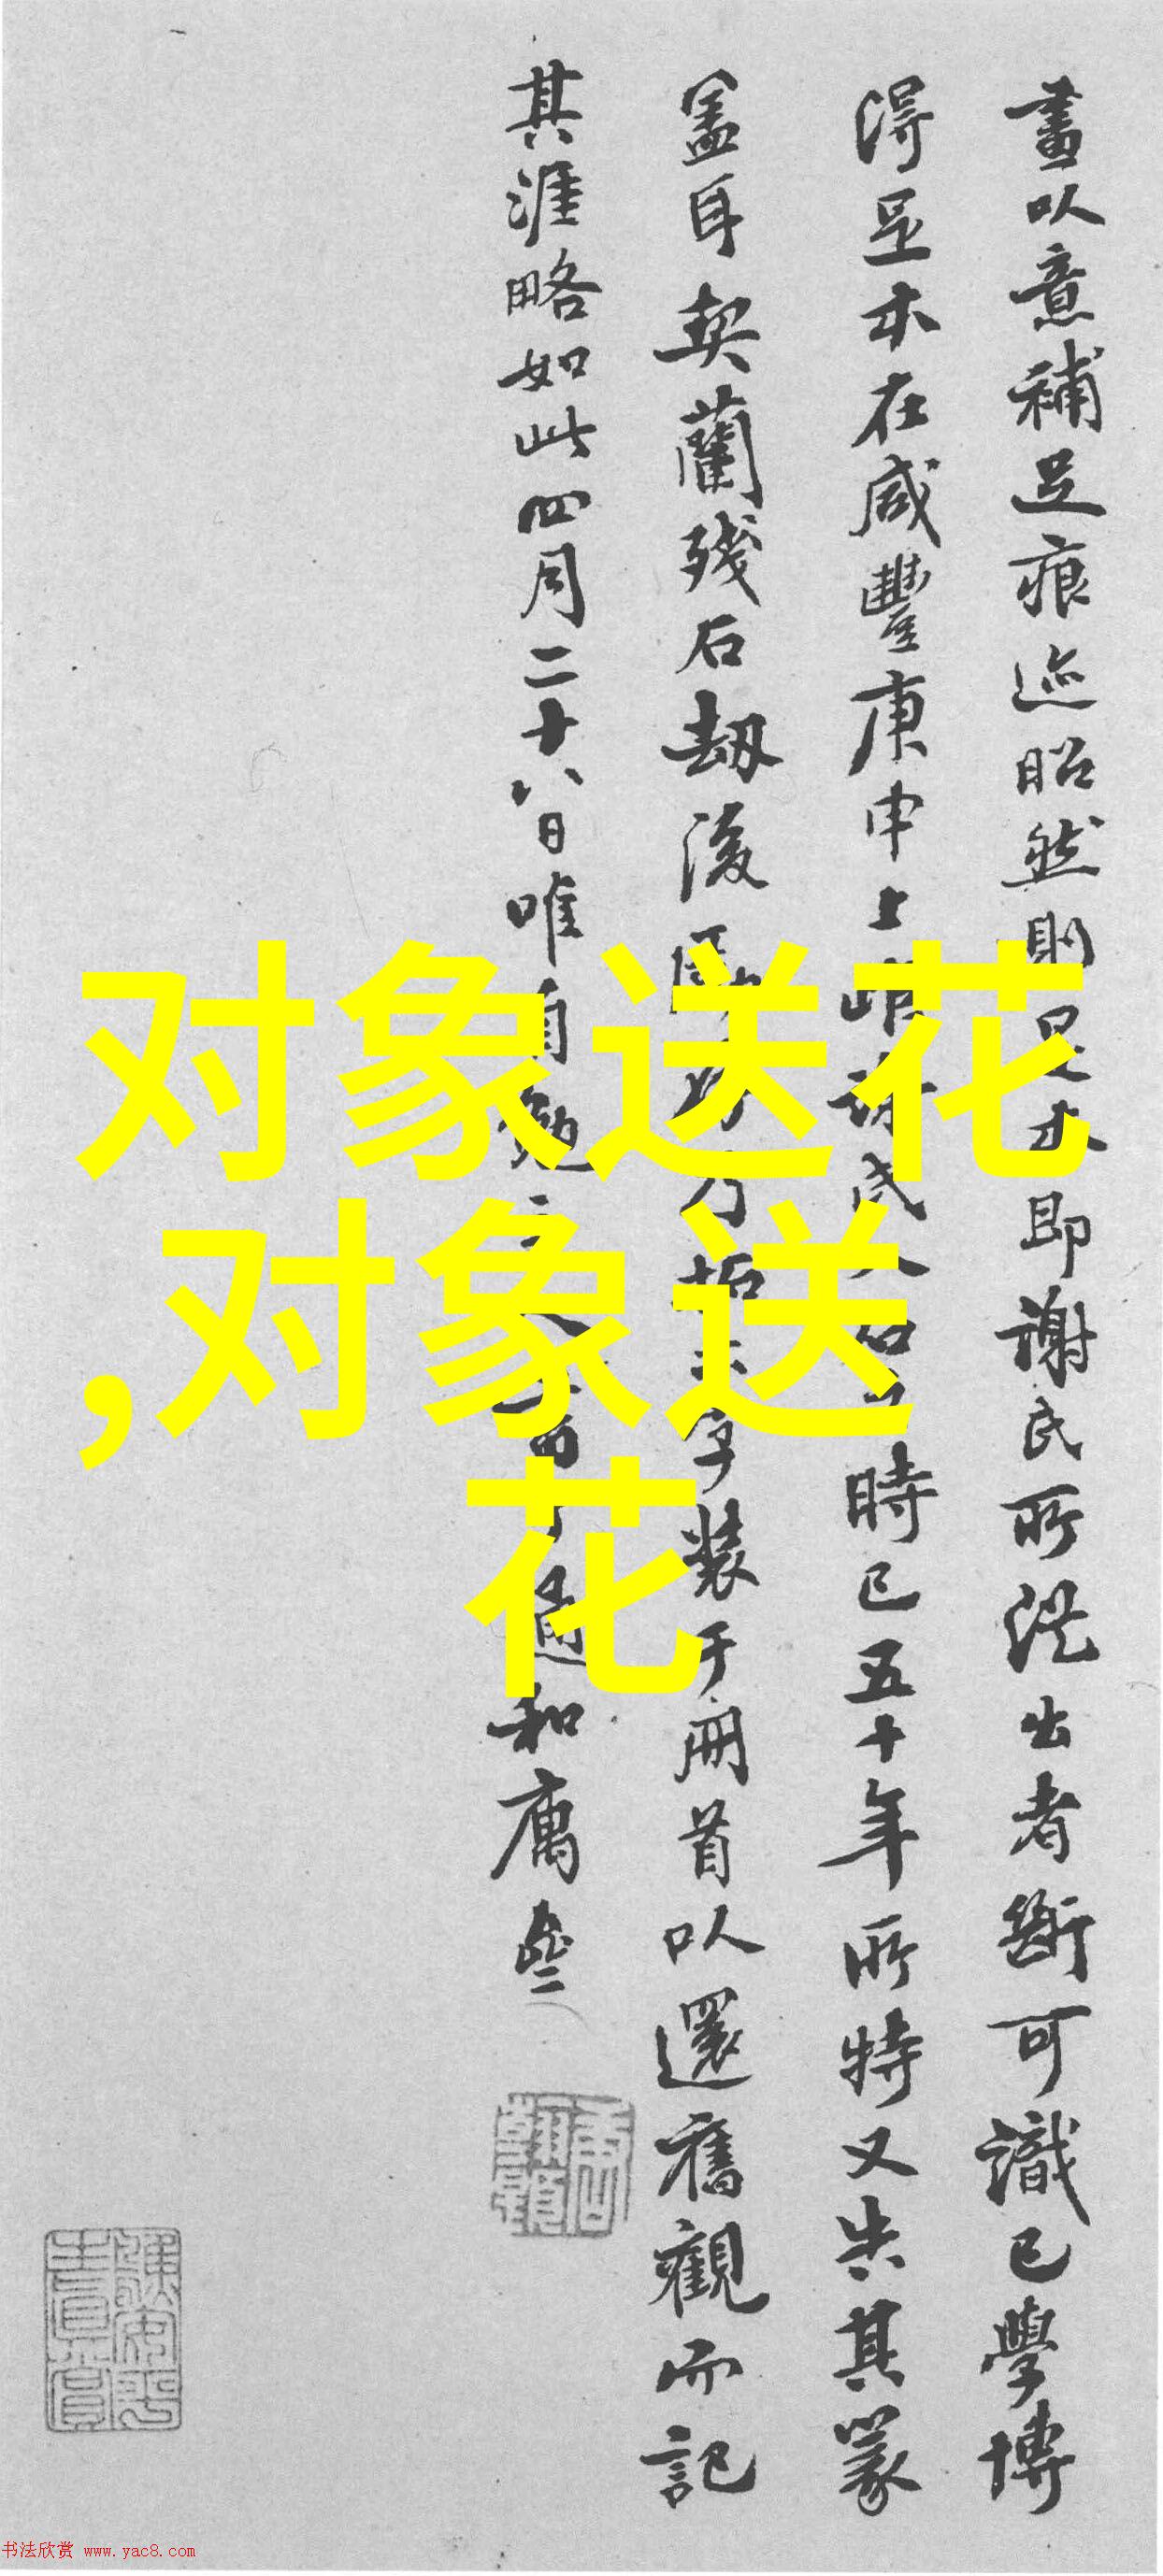 畫以意補足痕迹昭然則足本即謝氏所從出者斷可識已學博
得足本在咸豐庚申上距謝氏時已五十年所特又失其篆
蓋耳契蘭殘石劫後乃拓字裝于冊首以還舊觀而記
其涯略如此四月二十八日唯和庵
对象送花
,对象送
花
书法欣赏 www.yac8.com